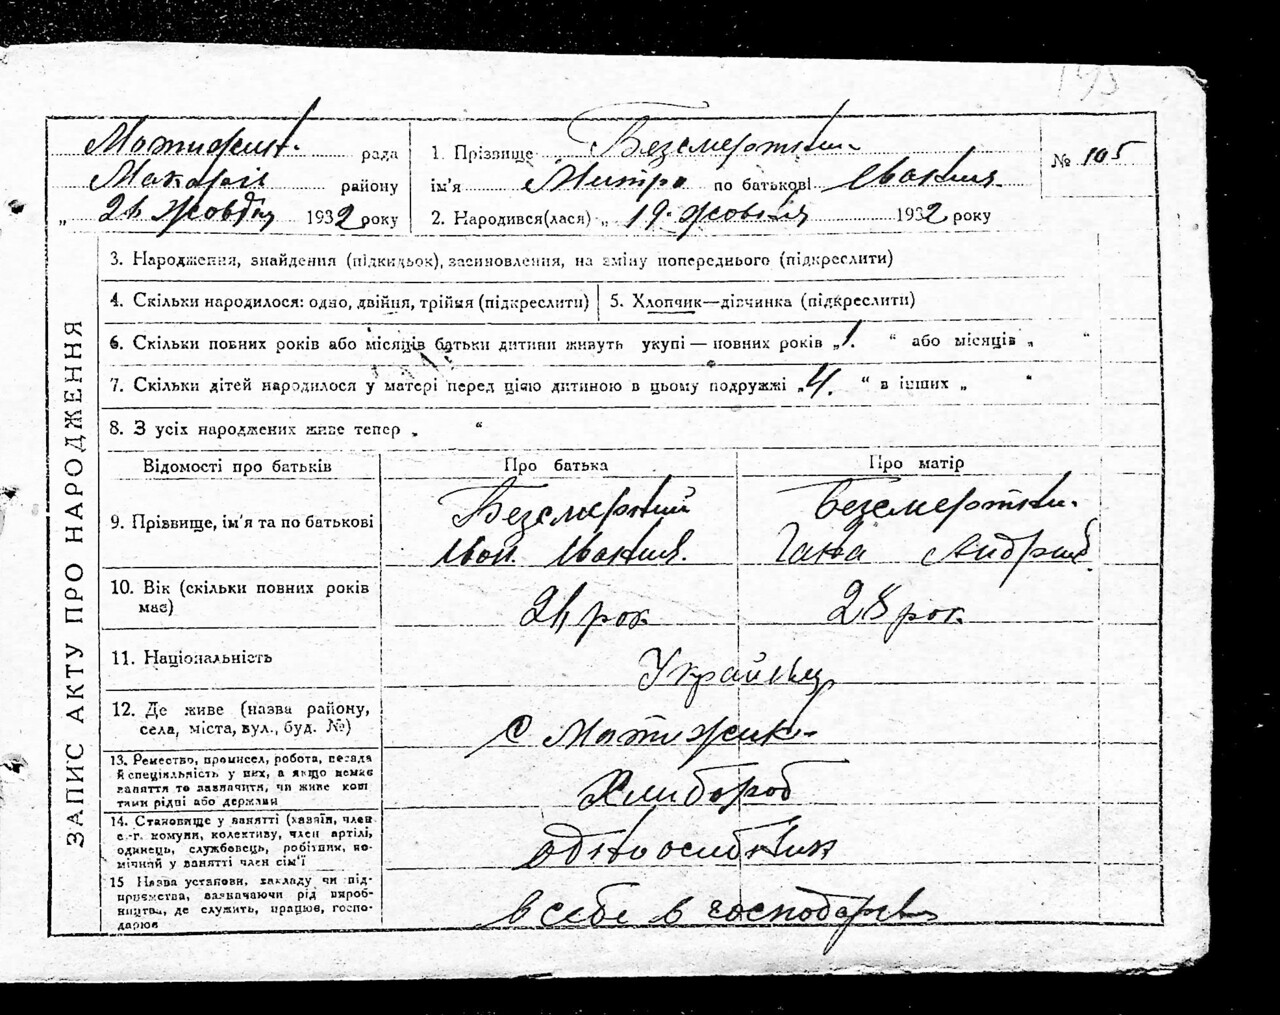 193
Мотижин. рада
Макарів району
„ 24 жовтня 1932 року
1. Прізвище Безсмертний
ім'я Митро по батькові Іванів
2. Народився(лася) „ 19. жовтня 1932 року
№ 105
ЗАПИС АКТУ ПРО НАРОДЖЕННЯ
3. Народження, знайдення (підкидьок), засиновлення, на зміну попереднього (підкреслити)
4. Скільки народилося: одно, двійня, трійня (підкреслити)
5. Хлопчик—дівчинка (підкреслити)
6. Скільки повних років або місяців батьки дитини живуть укупі — повних років „1. “ або місяців „ “
7. Скільки дітей народилося у матері перед цією дитиною в цьому подружжі „4. “ в інших „ “
8. З усіх народжених живе тепер „ “
Відомості про батьків
Про батька
Про матір
9. Прізвище, ім'я та по батькові
Безсмертний
Іван Іванів.
Безсмертна
Ганна Андріїв
10. Вік (скільки повних років
має)
24 рок
28 рок
11. Національність
Українці
12. Де живе (назва району,
села, міста, вул., буд. №)
с Мотижин
13. Ремество, промисел, робота, посада
й спеціяльність у них, а якщо немає
заняття то зазначити, чи живе кош
тами рідні або держави
Хлибороб
14. Становище у занятті (хазяїн, член
с.-г. комуни, колективу, член артілі,
одинець, службовець, робітник, по-
мічний у занятті член сім'ї
одноосибник
15 Назва установи, закладу чи під-
приємства, зазначаючи рід вироб-
ництва, де служить, працює, госпо-
дарює
в себе в господарстві